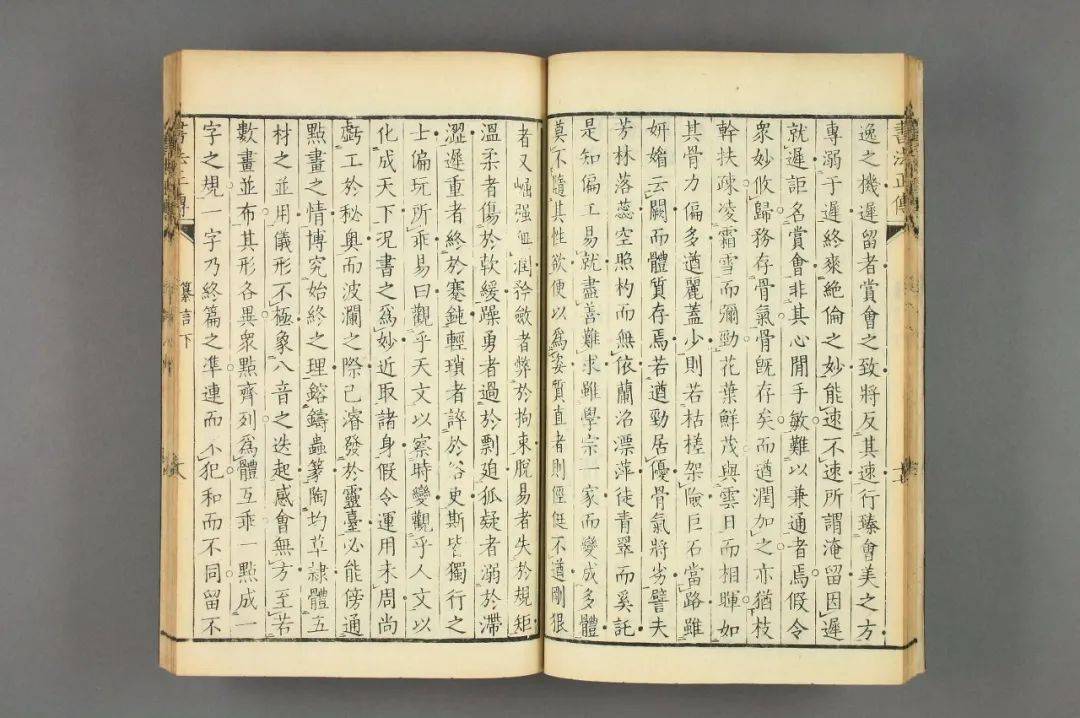 書法正傳
逸之機遲留者賞會之致將反其速行臻會美之方
專溺于遲終爽絕倫之妙能速不速所謂淹留因遲
就遲詎名賞會非其心閒手敏難以兼通者焉假令
衆妙攸歸務存骨氣骨旣存矣而遒潤加之亦猶枝
幹扶疎凌霜雪而彌勁花葉鮮茂與雲日而相暉如
其骨力偏多遒麗蓋少則若枯槎架險巨石當路雖
妍媚云闕而體質存焉若遒勁居優骨氣將劣譬夫
芳林落蕊空照杓而無依蘭沼漂萍徒青翠而奚託
是知偏工易就盡善難求雖學宗一家而變成多體
莫不隨其性欲便以爲姿質直者則俓侹不遒剛狠
者又崛强無潤矜斂者弊於拘束脫易者失於規矩
溫柔者傷於軟緩躁勇者過於剽廹狐疑者溺於滯
澀遲重者終於蹇鈍輕瑣者誶於俗史斯皆獨行之
士偏玩所乖易曰觀乎天文以察時變觀乎人文以
化成天下況書之爲妙近取諸身假令運用未周尚
虧工於秘奥而波瀾之際已濬發於靈臺必能傍通
點畫之情博究始終之理鎔鑄蟲篆陶均草隷體五
材之並用儀形不極象八音之迭起感會無方至若
數畫並布其形各異衆點齊列爲體互乖一點成一
字之規一字乃終篇之準連而不犯和而不同留不
纂言下